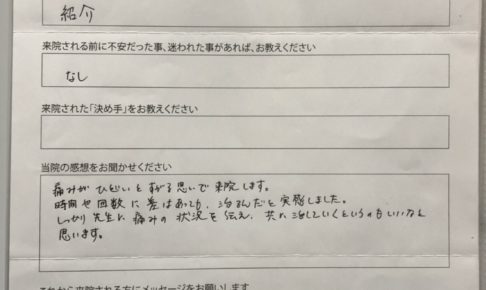 紹介
来院される前に不安だった事、迷われた事があれば、お教えください
なし
来院された「決め手」をお教えください
当院の感想をお聞かせください
痛みがひどいとすがる思いで来院します。
時間や回数に差はあっても、治るんだと実感しました。
しっかり先生に痛みの状況を伝え、共に治していくというのもいいなと
思います。
これから来院される方にメッセージをお願いします